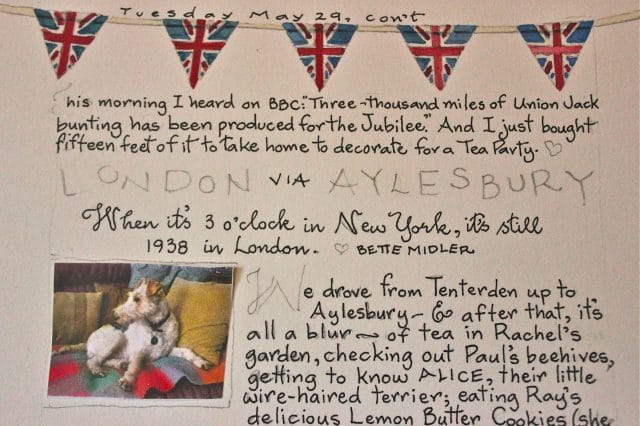 Tuesday May 29, con't
This morning I heard on BBC: "Three-thousand miles of Union Jack
bunting has been produced for the Jubilee." And I just bought
fifteen feet of it to take home to decorate for a Tea Party. ♡
LONDON VIA AYLESBURY
When it's 3 o'clock in New York, it's still
1938 in London. ♡ BETTE MIDLER
We drove from Tenterden up to
Aylesbury - & after that, it's
all a blur ~ of tea in Rachel's
garden, checking out Paul's beehives,
getting to know ALICE, their little
wire-haired terrier; eating Ray's
delicious Lemon Butter Cookies (she